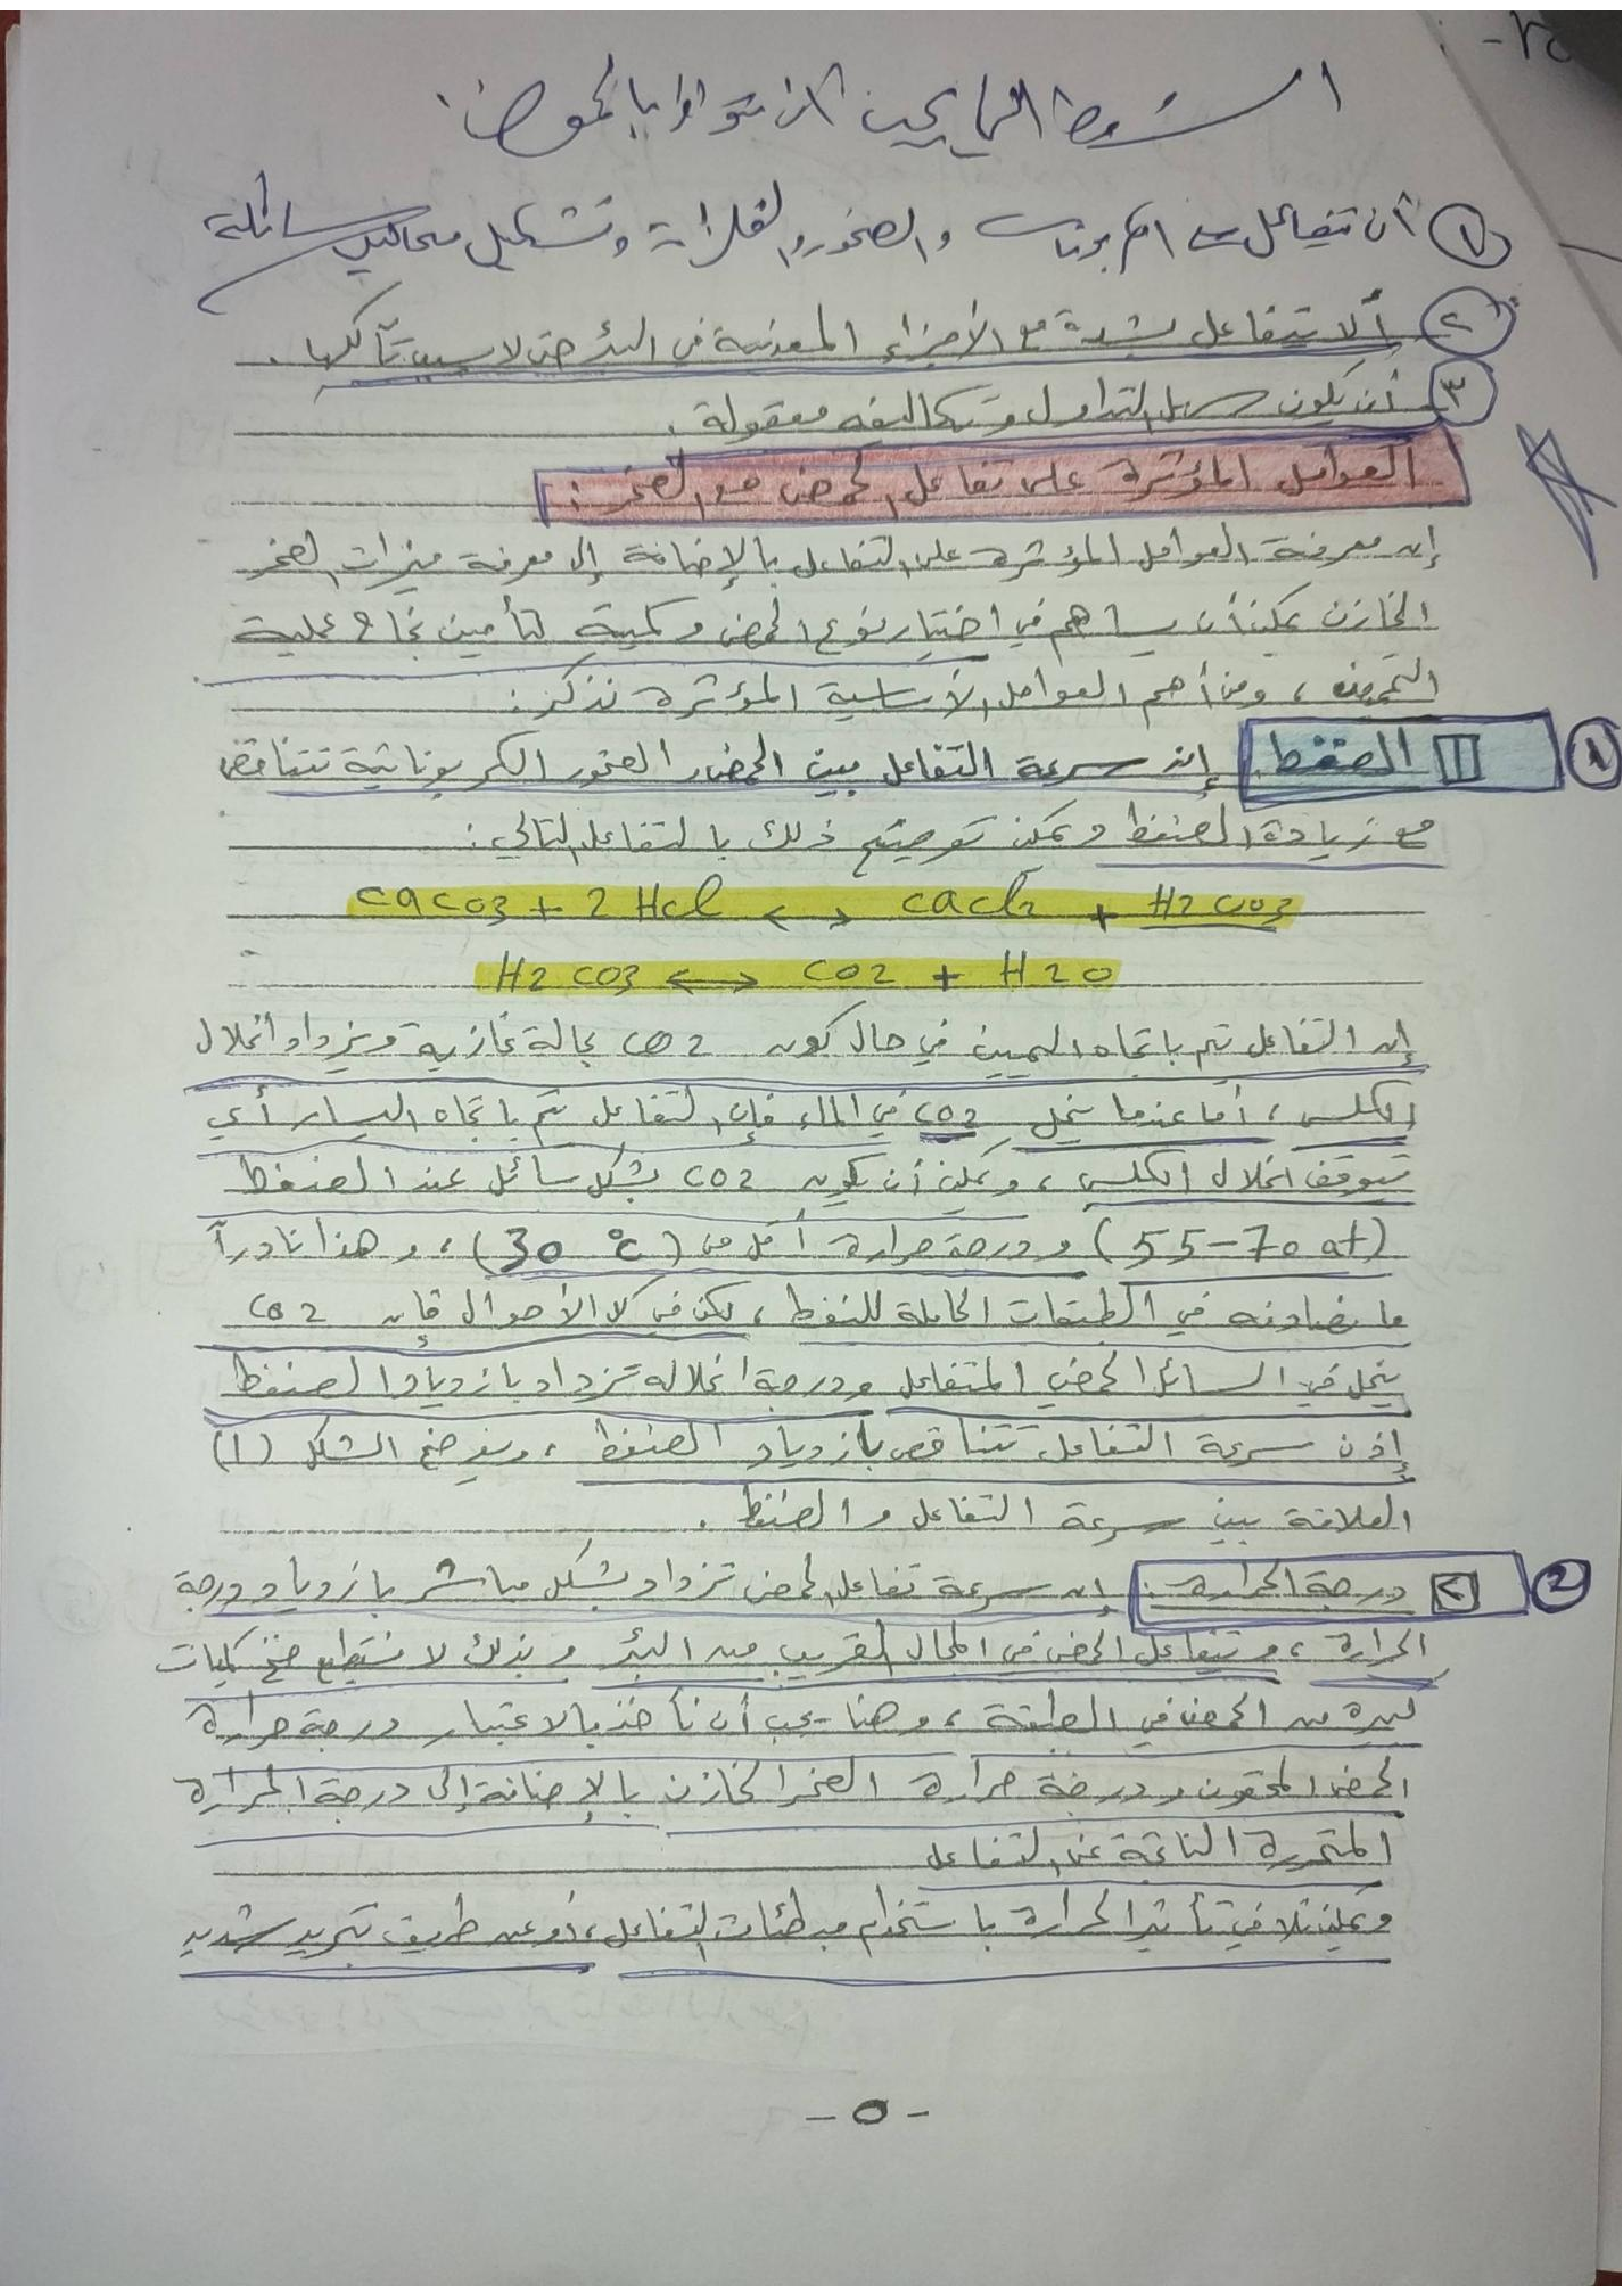 الشروط التي يجب أن تتوافر بالحموض:
① أن تتفاعل مع الكربونات والصخور والفلزات وتشكيل محاليل سائلة
② ألا تتفاعل بشدة مع الأجزاء المعدنية في البئر حتى لا يسبب تآكلها.
③ أن يكون سهل التداول وتكاليفه معقولة.
العوامل المؤثرة على تفاعل الحمض مع الصخر:
إن معرفة العوامل المؤثرة على التفاعل بالإضافة إلى معرفة ميزات الصخر
الخازن يمكن أن يساهم في اختيار نوع الحمض وكميته لتأمين نجاح عملية
التحميض، ومن أهم العوامل الأساسية المؤثرة نذكر:
① 1 الضغط: إن سرعة التفاعل بين الحمض والصخور الكربوناتية تتناقص
مع زيادة الضغط ويمكن توضيح ذلك بالتفاعل التالي:
CaCO3 + 2 HCl <-> CaCl2 + H2CO3
H2CO3 <-> CO2 + H2O
إن التفاعل يتم باتجاه اليمين في حال كون CO2 بحالة غازية ويزداد انحلال
الكلس، أما عندما ينحل CO2 في الماء فإن التفاعل يتم باتجاه اليسار أي
يتوقف انحلال الكلس، ويمكن أن يكون CO2 بشكل سائل عند الضغط
(55-70 at) ودرجة حرارة أقل من (30 °C)، وهذا نادراً
ما نصادفه في الطبقات الحاملة للنفط، لكن في كلا الأحوال فإن CO2
ينحل في السائل الحمضي المتفاعل ودرجة انحلاله تزداد بازدياد الضغط
إذن سرعة التفاعل تتناقص بازدياد الضغط، ويوضح الشكل (1)
العلاقة بين سرعة التفاعل والضغط.
② 2 درجة الحرارة: إن سرعة تفاعل الحمض تزداد بشكل مباشر بازدياد درجة
الحرارة، ويتفاعل الحمض في المجال القريب من البئر وبذلك لا نستطيع ضخ كميات
كبيرة من الحمض في الطبقة، وهنا يجب أن نأخذ بالاعتبار درجة حرارة
الحمض المحقون ودرجة حرارة الصخر الخازن بالإضافة إلى درجة الحرارة
المتحررة الناتجة عن التفاعل
ويمكن تلافي تأثير الحرارة باستخدام مبطئات التفاعل، أو عن طريق تبريد شديد
- ٥ -